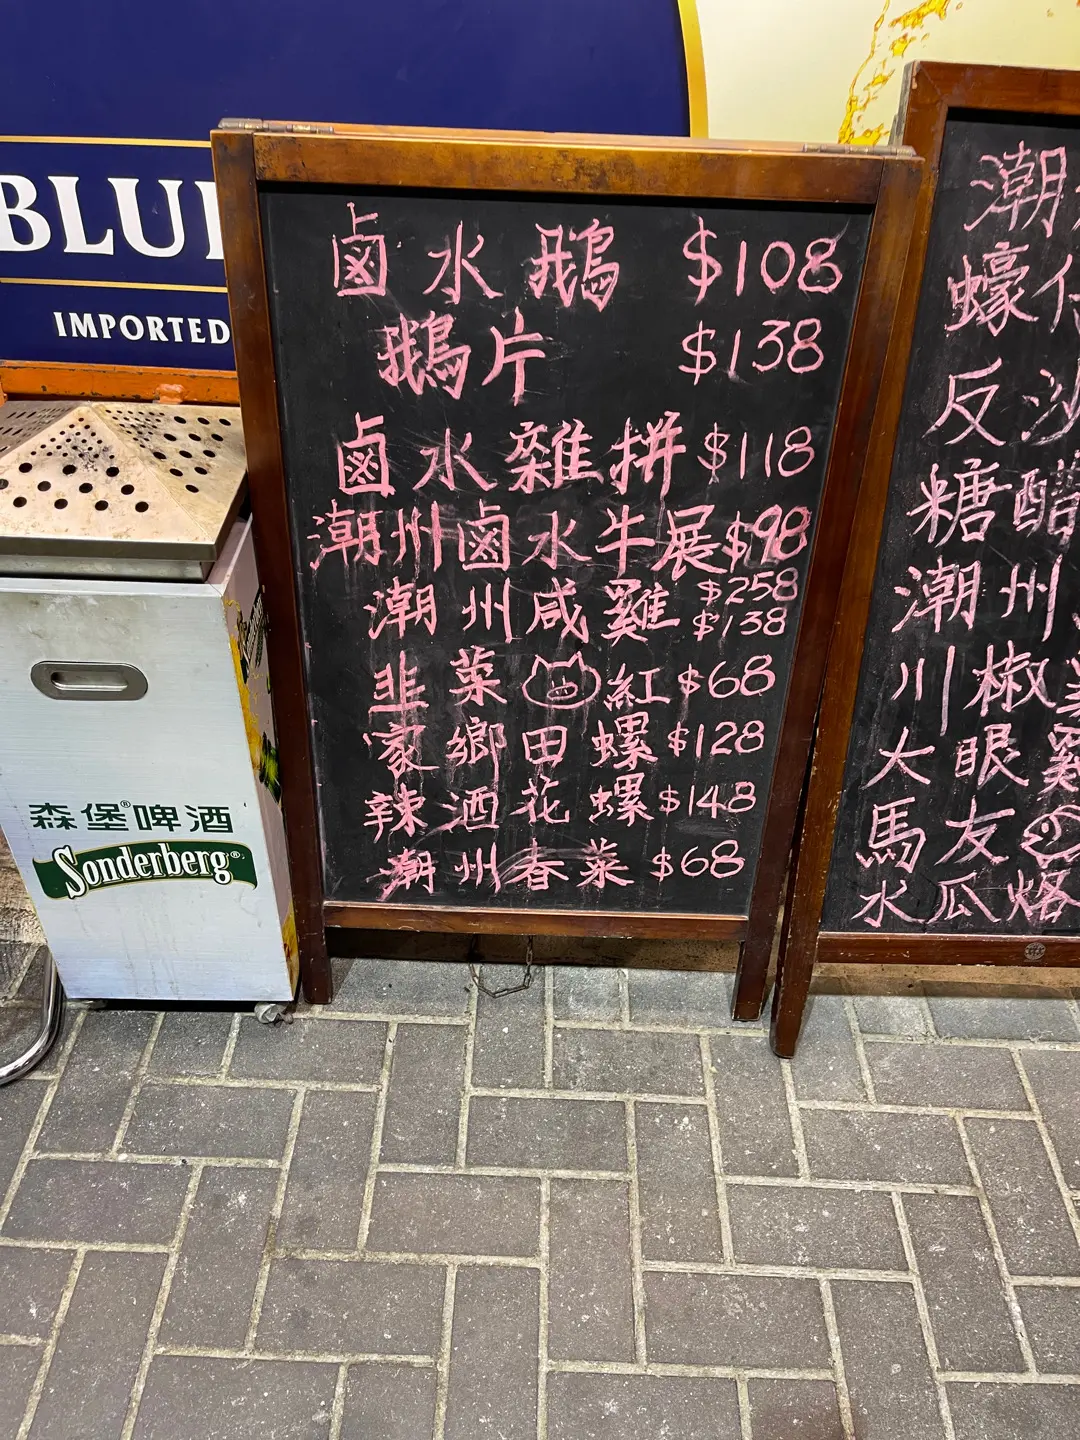 BLU
IMPORTED
鹵水鵝 $108
鵝片 $138
鹵水雜拼 $118
潮州鹵水牛展 $98
潮州咸雞 $258
$138
韭菜紅 $68
家鄉田螺 $128
辣酒花螺 $148
潮州春菜 $68
森堡®啤酒
Sonderberg®
潮
蠔仔
反沙
糖醋
潮州
川椒
大眼雞
馬友
水瓜烙